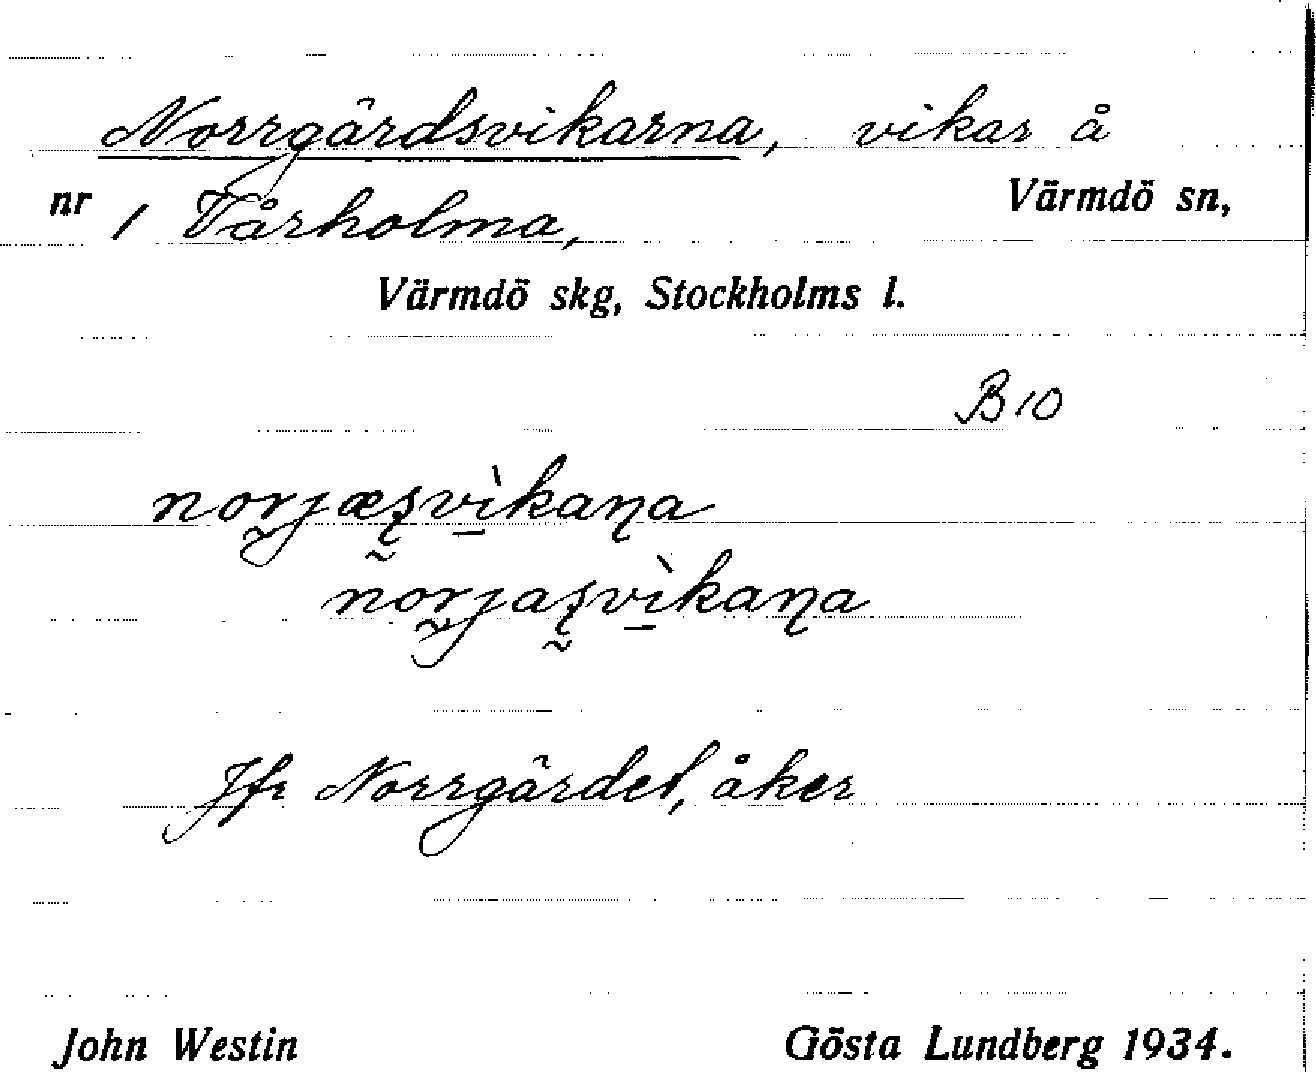 Norrgårdsvikarna, vikar å
nr 1 Tårholma, Värmdö sn,
Värmdö skg, Stockholms l.
B 10
norjæșvìkaṇa
norjașvìkaṇa
Jfr Norrgärdet, åker
John Westin Gösta Lundberg 1934.